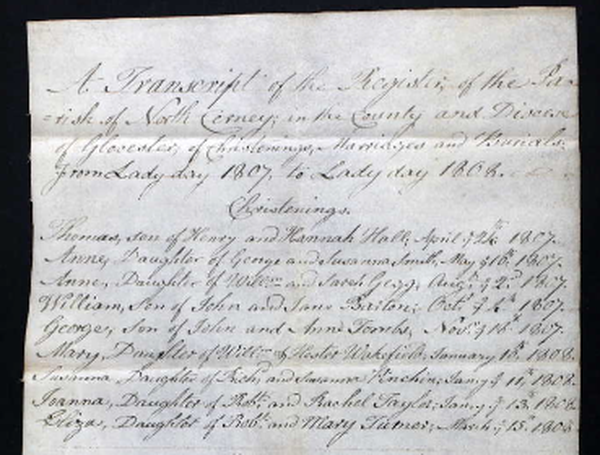 A Transcript of the Register, of the Pa-
-rish of North Cerney; in the County and Diocese
of Glocester; of Christenings, Marriages and Burials;
from Lady day 1807, to Lady day 1808.
Christenings.
Thomas, son of Henry and Hannah Hall, April ye 1807.
Anne, Daughter of George and Susanna Smith, May ye 1807.
Anne, Daughter of Willm and Sarah Gegg, Augt ye 2d 1807.
William, Son of John and Jane Barton; Octr ye 1807.
George, son of John and Anne Tombs, Novr ye 1807.
Mary, Daughter of Willm & Hester Wakefield; January 1808.
Susanna, Daughter of Richd and Susanna Pinchin; Jany ye 11th 1808.
Joanna, Daughter of Robt and Rachel Taylor; Jany ye 13th 1808.
Eliza, Daughter of Robt and Mary Turner; March ye 13. 1808